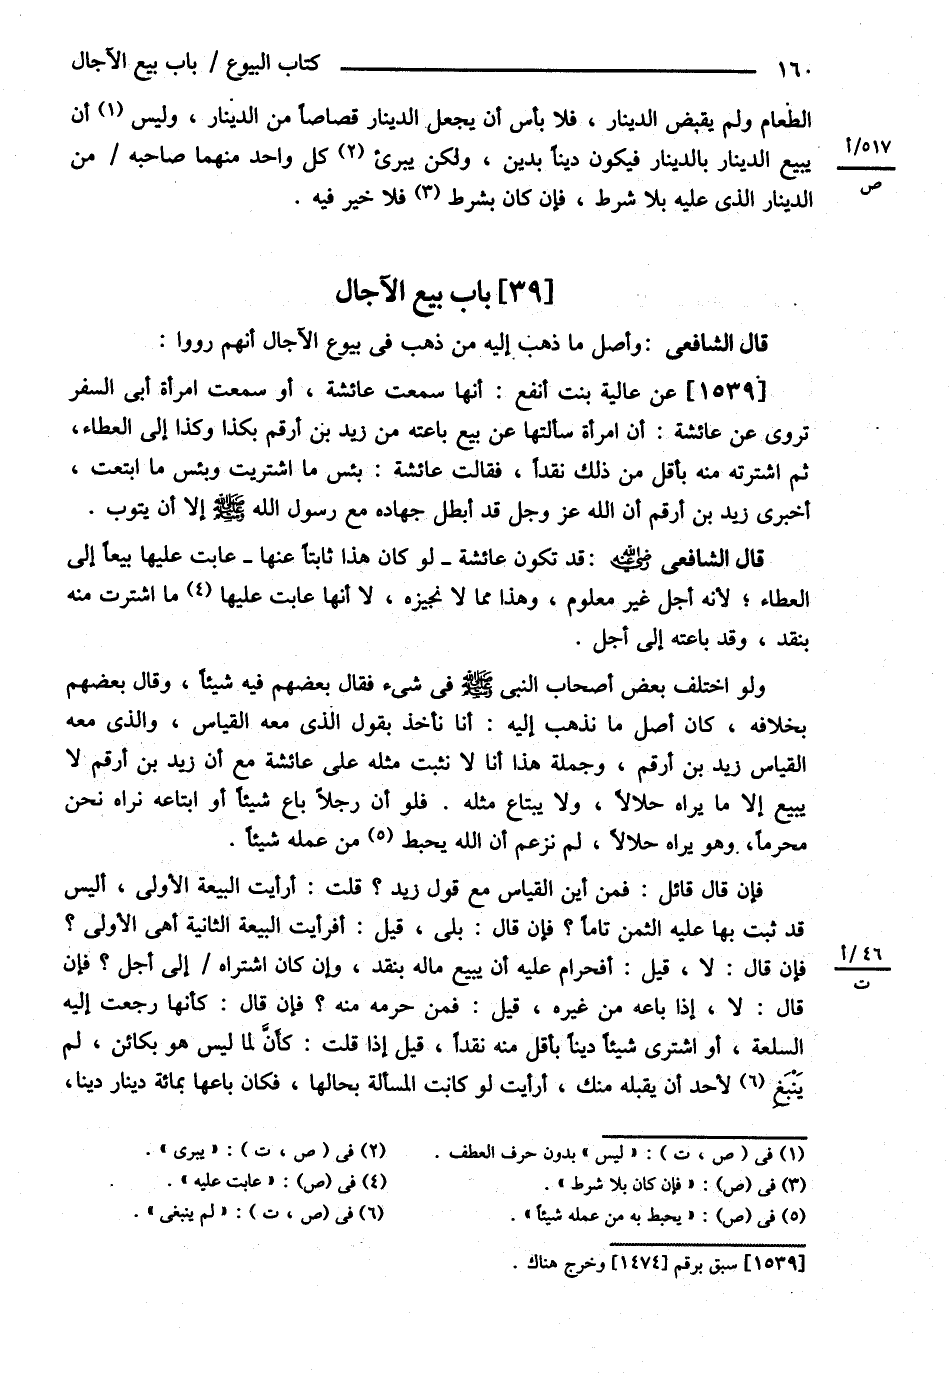 ١٦٠ ــــــــــــــــــــ كتاب البيوع / باب بيع الآجال
الطعام ولم يقبض الدينار ، فلا بأس أن يجعل الدينار قصاصاً من الدينار ، وليس (١) أن
يبيع الدينار بالدينار فيكون ديناً بدين ، ولكن يبرئ (٢) كل واحد منهما صاحبه / من
٥١٧/أ
ص
الدينار الذى عليه بلا شرط ، فإن كان بشرط (٣) فلا خير فيه .
[٣٩] باب بيع الآجال
قال الشافعى : وأصل ما ذهب إليه من ذهب فى بيوع الآجال أنهم رووا :
[١٥٣٩] عن عالية بنت أنفع : أنها سمعت عائشة ، أو سمعت امرأة أبى السفر
تروى عن عائشة : أن امرأة سألتها عن بيع باعته من زيد بن أرقم بكذا وكذا إلى العطاء،
ثم اشترته منه بأقل من ذلك نقداً ، فقالت عائشة : بئس ما اشتريت وبئس ما ابتعت ،
أخبرى زيد بن أرقم أن الله عز وجل قد أبطل جهاده مع رسول الله ﷺ إلا أن يتوب .
قال الشافعى رضي الله عنه : قد تكون عائشة ـ لو كان هذا ثابتاً عنها ـ عابت عليها بيعاً إلى
العطاء ؛ لأنه أجل غير معلوم ، وهذا مما لا نجيزه ، لا أنها عابت عليها (٤) ما اشترت منه
بنقد ، وقد باعته إلى أجل .
ولو اختلف بعض أصحاب النبى ﷺ فى شىء فقال بعضهم فيه شيئاً ، وقال بعضهم
بخلافه ، كان أصل ما نذهب إليه : أنا نأخذ بقول الذى معه القياس ، والذى معه
القياس زيد بن أرقم ، وجملة هذا أنا لا نثبت مثله على عائشة مع أن زيد بن أرقم لا
يبيع إلا ما يراه حلالاً ، ولا يبتاع مثله . فلو أن رجلاً باع شيئاً أو ابتاعه نراه نحن
محرماً، وهو يراه حلالاً ، لم نزعم أن الله يحبط (٥) من عمله شيئاً .
فإن قال قائل : فمن أين القياس مع قول زيد ؟ قلت : أرأيت البيعة الأولى ، أليس
قد ثبت بها عليه الثمن تاماً ؟ فإن قال : بلى ، قيل : أفرأيت البيعة الثانية أهى الأولى ؟
فإن قال : لا ، قيل : أفحرام عليه أن يبيع ماله بنقد ، وإن كان اشتراه / إلى أجل ؟ فإن
٤٦/أ
ت
قال : لا ، إذا باعه من غيره ، قيل : فمن حرمه منه ؟ فإن قال : كأنها رجعت إليه
السلعة ، أو اشترى شيئاً ديناً بأقل منه نقداً ، قيل إذا قلت : كأَنَّ لما ليس هو بكائن ، لم
يَنْبَغِ (٦) لأحد أن يقبله منك ، أرأيت لو كانت المسألة بحالها ، فكان باعها بمائة دينار دينا،
(١) فى ( ص ، ت ) : « ليس » بدون حرف العطف . (٢) فى ( ص ، ت ) : « يبرى » .
(٣) فى (ص) : « فإن كان بلا شرط » . (٤) فى (ص) : « عابت عليه » .
(٥) فى (ص) : « يحبط به من عمله شيئاً » . (٦) فى (ص ، ت ) : « لم ينبغى » .
[١٥٣٩] سبق برقم [١٤٧٤] وخرج هناك .